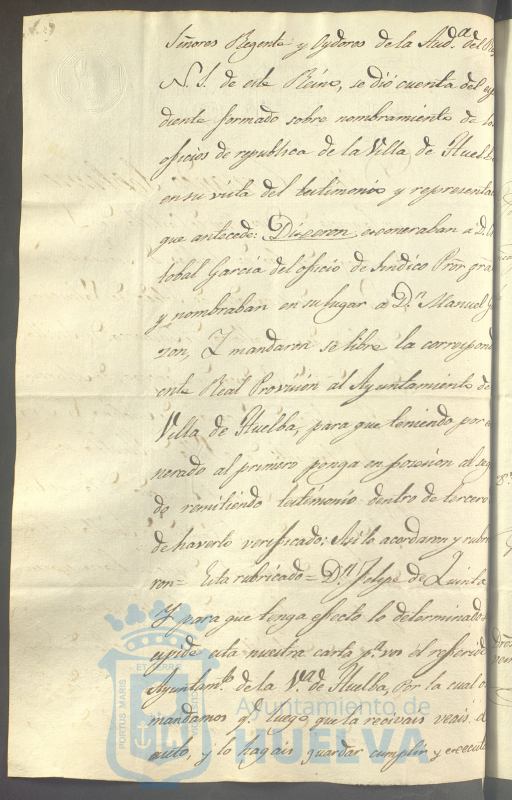 Señores Regente y Oydores de la Aud.ᵃ del R
N. S. de este Reino, se dió cuenta del expe
diente formado sobre nombramiento de los
oficios de republica de la Villa de Huelb
en su vista del testimonio y representa
que antecede: Dixeron exoneraban á D.
tobal Garcia del oficio de Sindico Pror gral
y nombraban en su lugar a D.ⁿ Manuel
zon, Y mandaron se libre la correspond
ente Real Provision al Ayuntamiento de
Villa de Huelba, para que teniendo por
nerado al primero ponga en posesion al seg
do remitiendo testimonio dentro de tercero
de haverlo verificado: Asi lo acordaron y rubri
ron = Esta rubricado = D.ⁿ Felipe de Quinta
Y para que tenga efecto lo determinado
espide esta nuestra carta p.ᵃ vos el referido
Ayuntam.ᵗᵒ de la V.ᵃ de Huelba, Por la cual os
mandamos q.ᵉ luego que la recivais veais el
auto, y lo hagais guardar cumplir y executa
PORTUS MARIS
ET TERRE
Ayuntamiento de
HUELVA